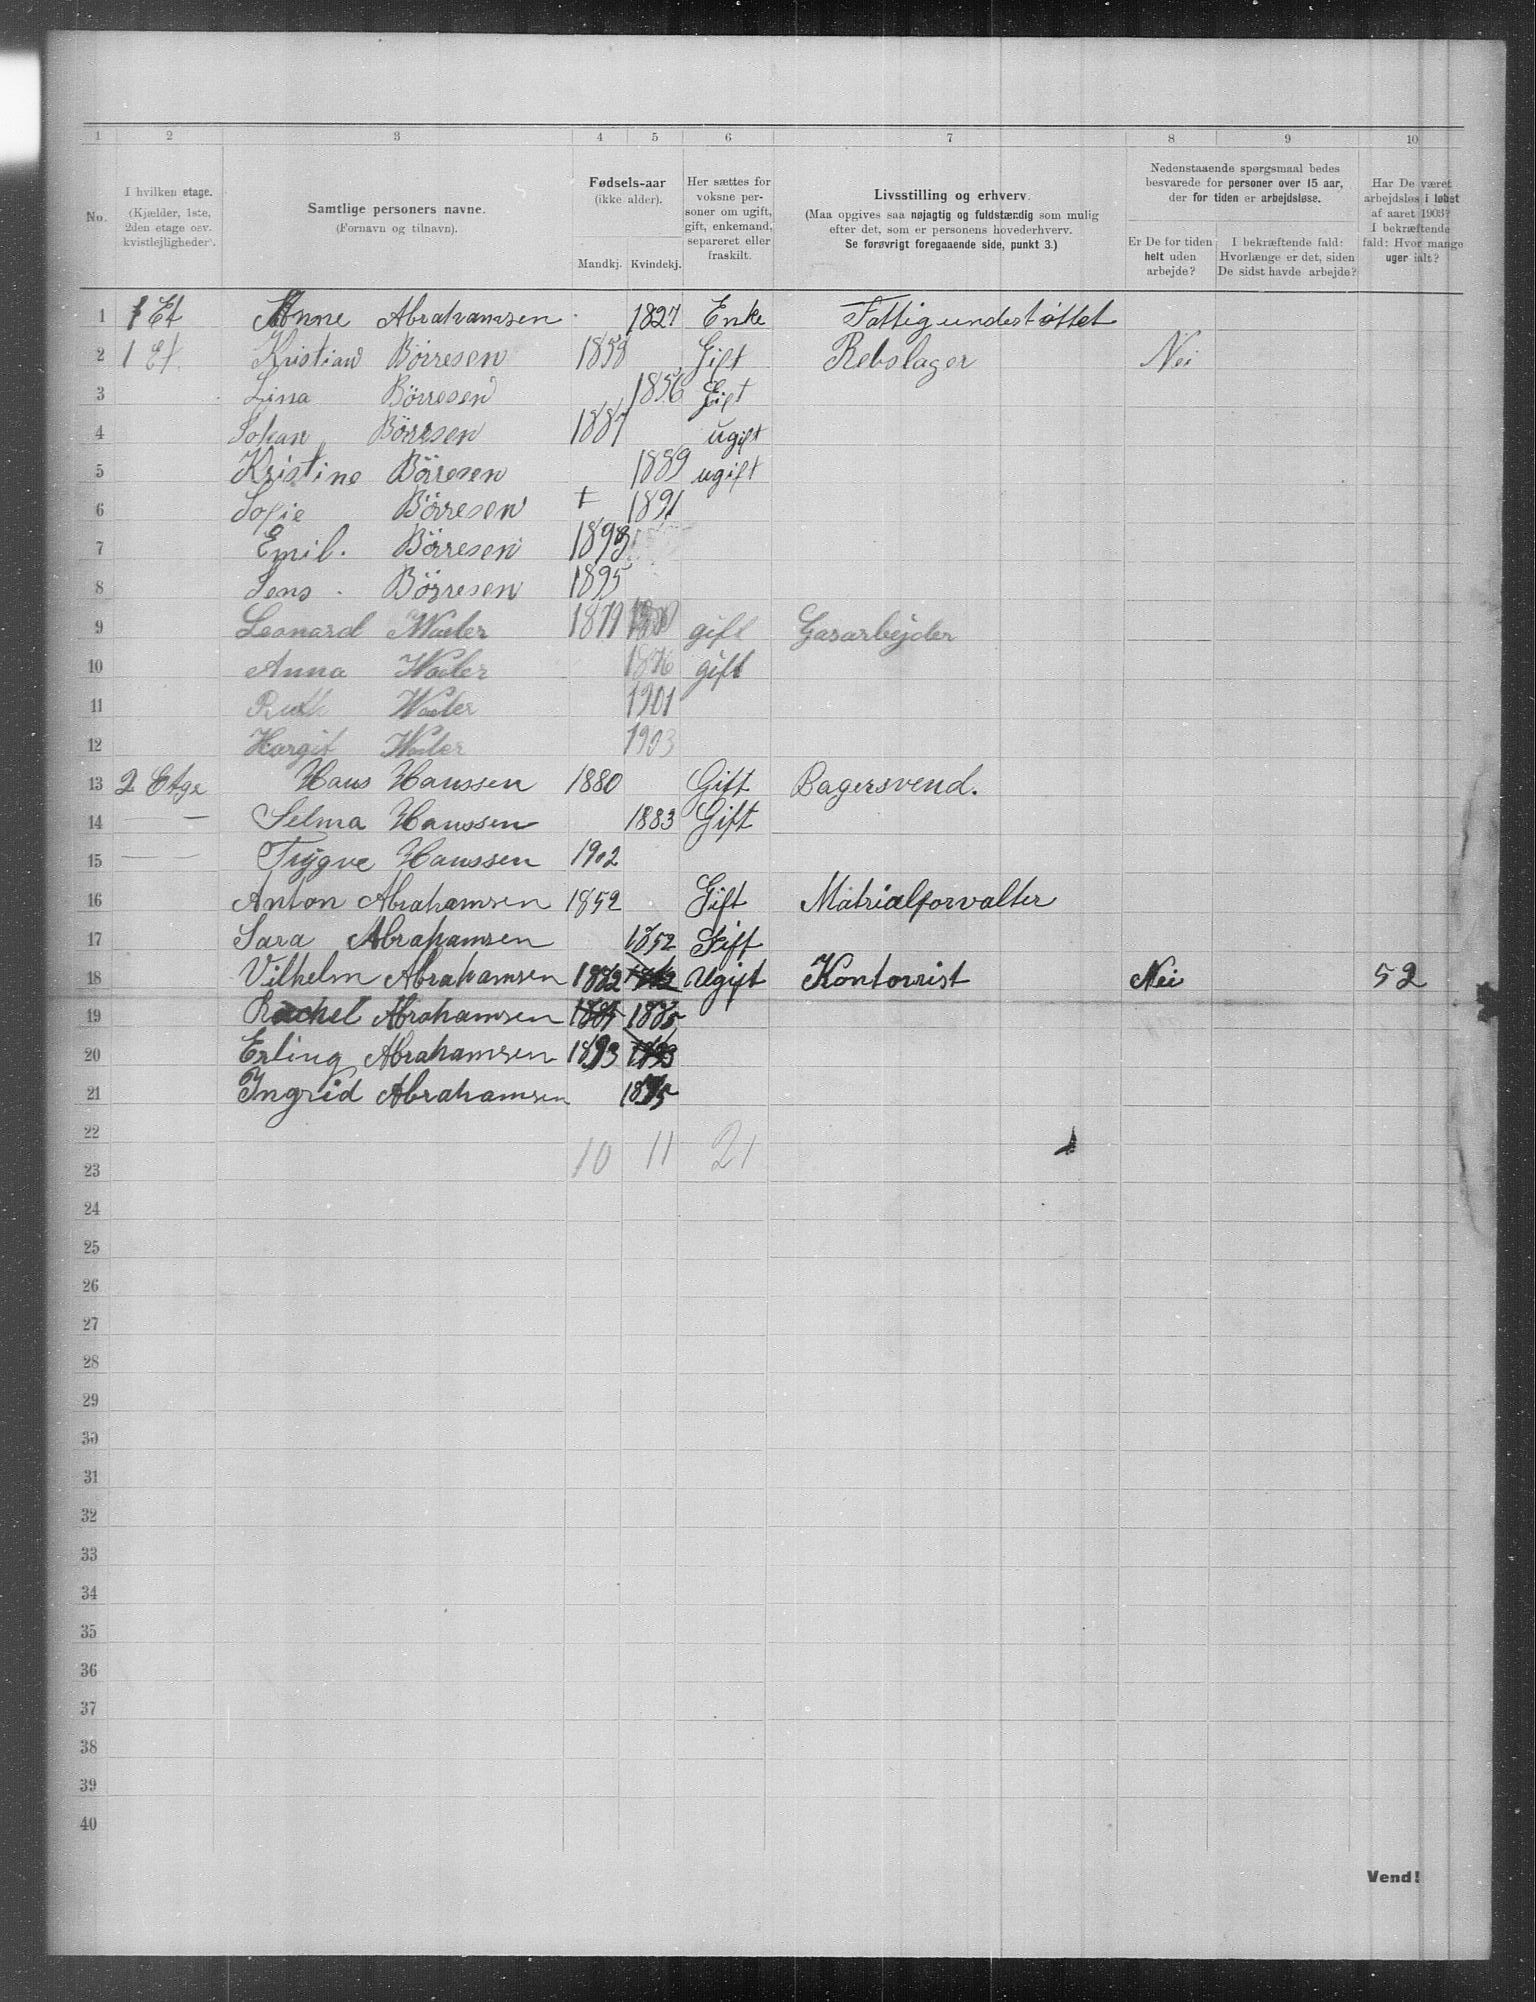 1 2 3 4 5 6 7 8 9 10
No.
I hvilken etage.
(Kjælder, 1ste,
2den etage osv.
kvistlejligheder).
Samtlige personers navne.
(Fornavn og tilnavn).
Fødsels-aar
(ikke alder).
Mandkj. Kvindekj.
Her sættes for
voksne per-
soner om ugift,
gift, enkemand,
separeret eller
fraskilt.
Livsstilling og erhverv.
(Maa opgives saa nøjagtig og fuldstændig som mulig
efter det, som er personens hovederhverv.
Se forøvrigt foregaaende side, punkt 3.)
Nedenstaaende spørgsmaal bedes
besvarede for personer over 15 aar,
der for tiden er arbejdsløse.
Er De for tiden
helt uden
arbejde?
I bekræftende fald:
Hvorlænge er det, siden
De sidst havde arbejde?
Har De været
arbejdsløs i løbet
af aaret 1903?
I bekræftende
fald: Hvor mange
uger ialt?
1 1 Et Anne Abrahamsen 1827 Enke Fattigunderstøttet
2 1 Et. Kristian Börresen 1858 Gift Rebslager Nei
3 Lina Börresen 1856 Gift
4 Johan Börresen 1887 ugift
5 Kristine Börresen 1889 ugift
6 Sofie Börresen 1891
7 Emil. Börresen 1893
8 Jens. Börresen 1895
9 Leonard Waler 1879 gift Gasarbejder
10 Anna Waler 1876 gift
11 Ruth Waler 1901
12 Hargit Waler 1903
13 2 Etge Hans Hanssen 1880 Gift Bagersvend.
14 — Selma Hanssen 1883 Gift
15 — — Trygve Hanssen 1902
16 Anton Abrahamsen 1852 Gift Matrialforvalter
17 Sara Abrahamsen 1852 Gift
18 Vilhelm Abrahamsen 1882 1882 Ugift Kontorrist Nei 52
19 Rachel Abrahamsen 1885 1885
20 Erling Abrahamsen 1893 1893
21 Ingrid Abrahamsen 1895
22
10 11 21
23
24
25
26
27
28
29
30
31
32
33
34
35
36
37
38
39
40
Vend!